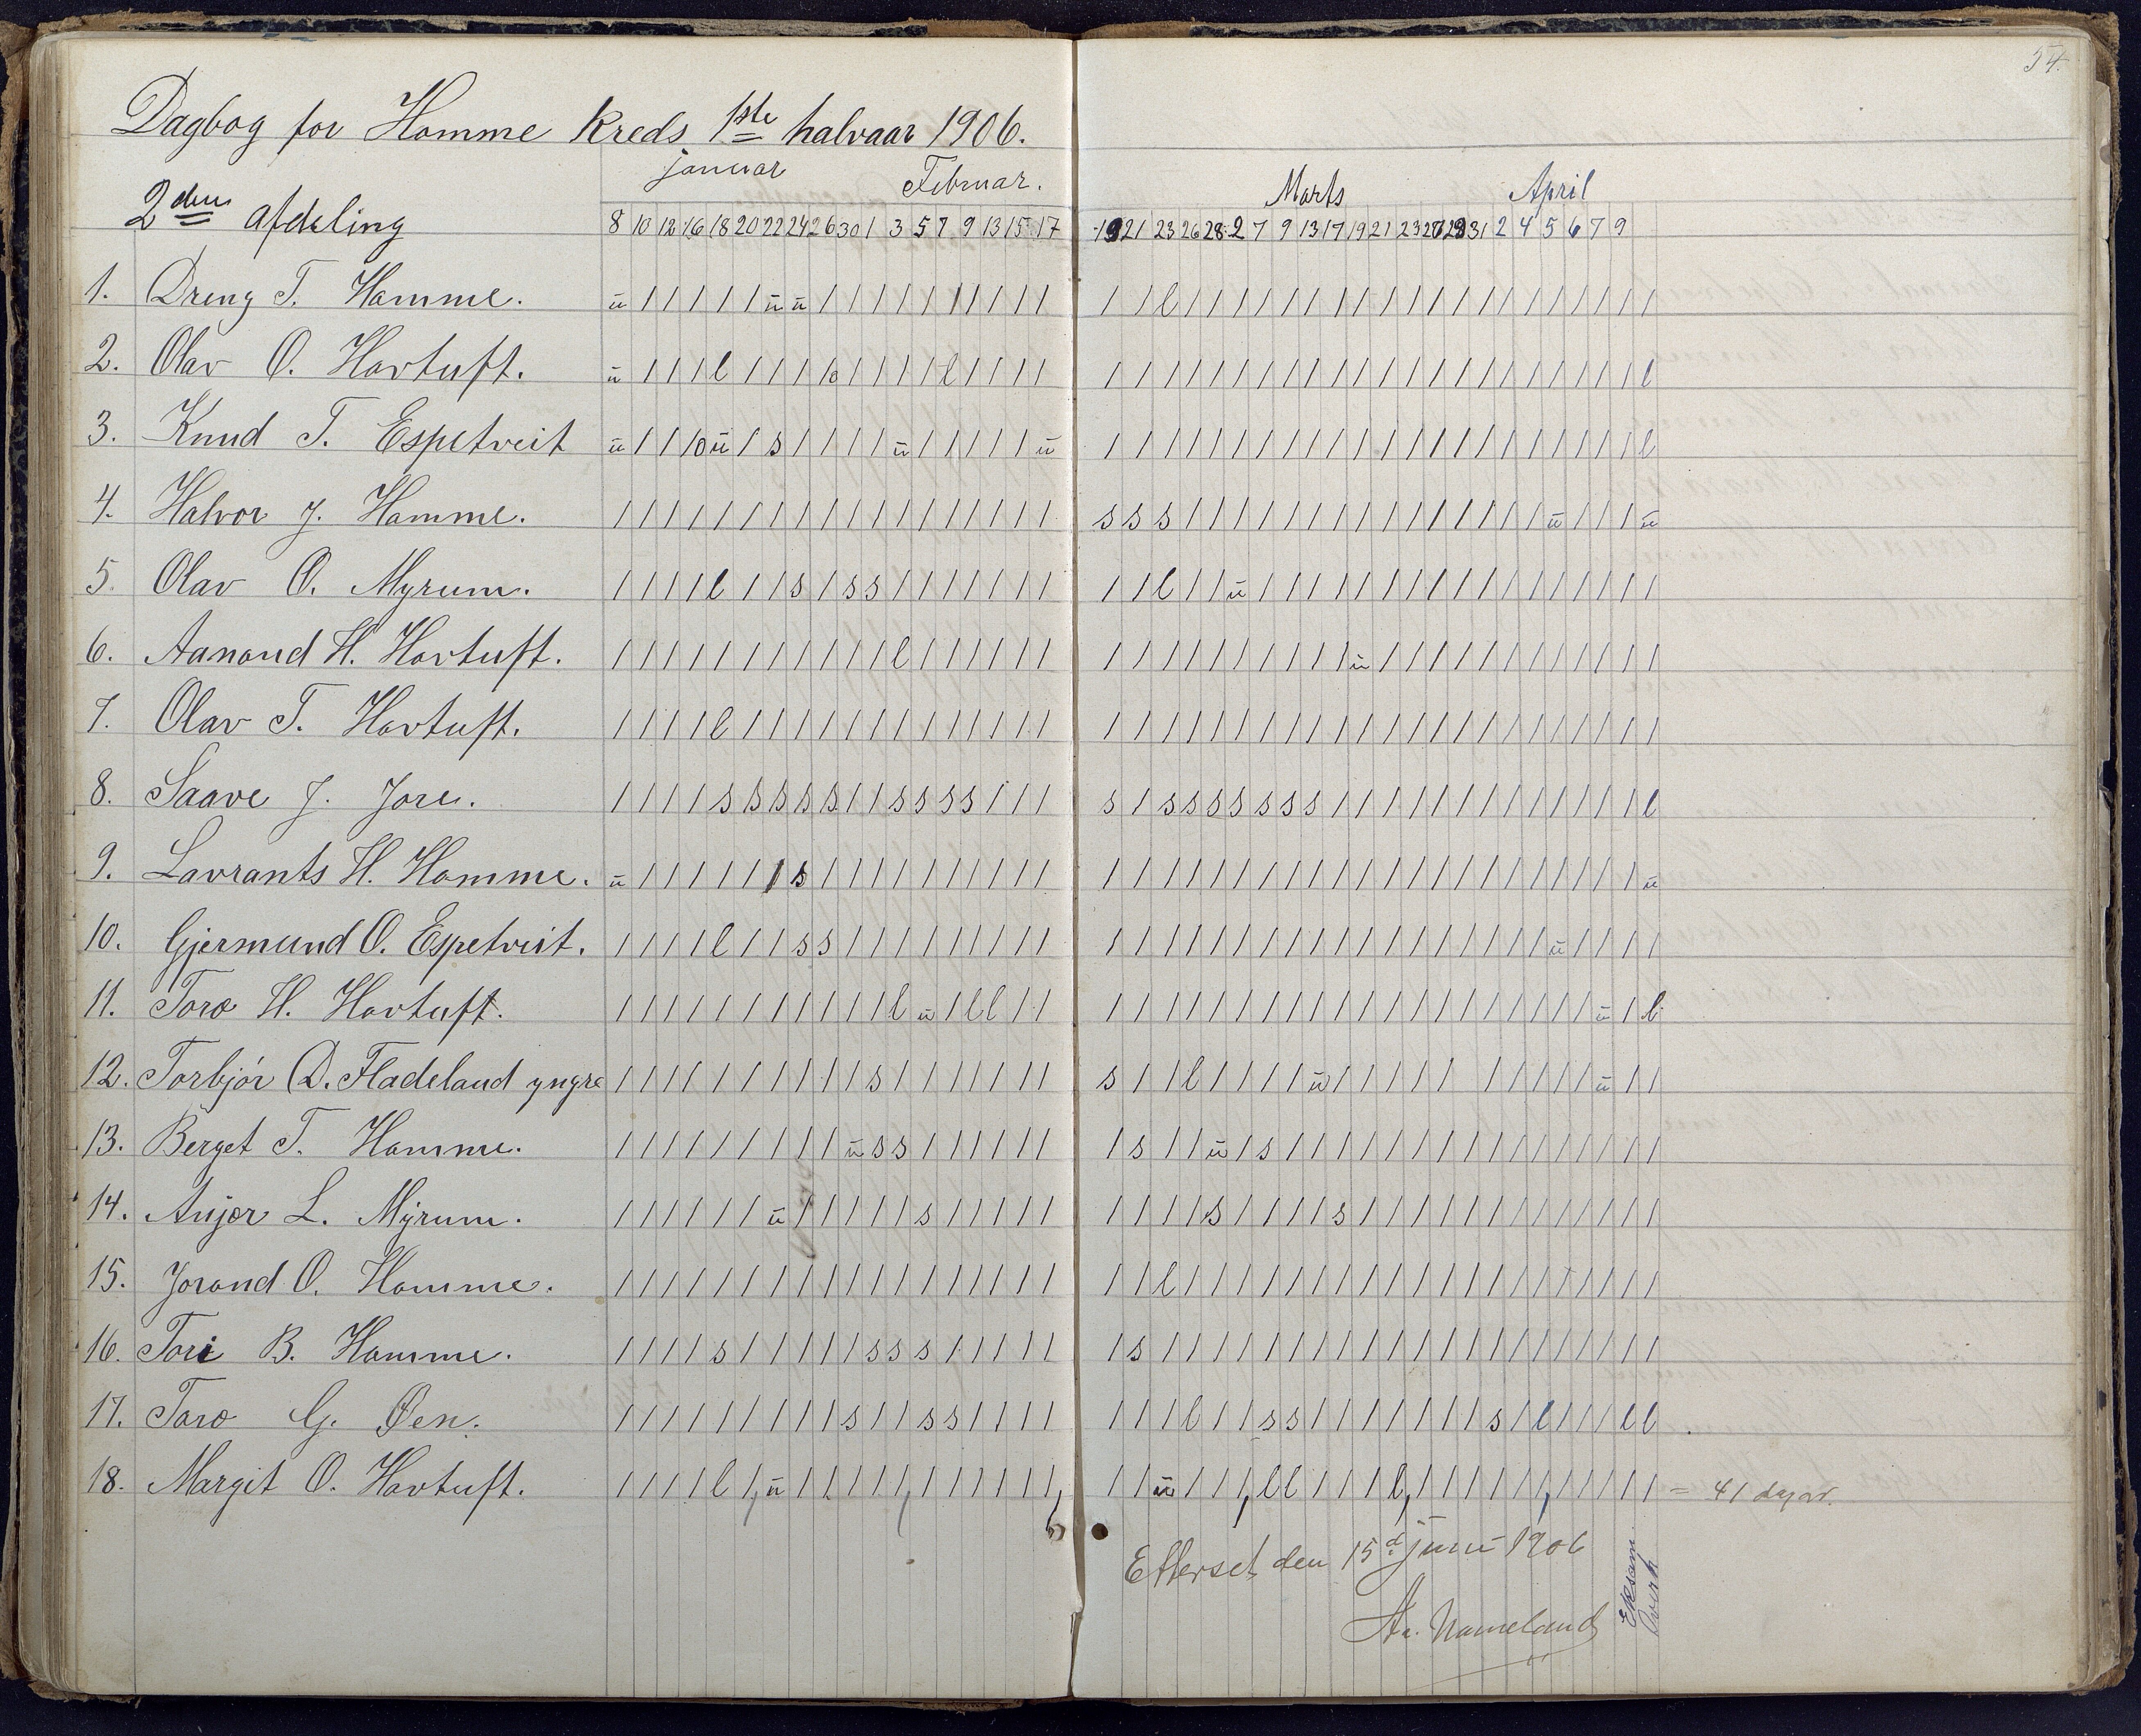 54.
Dagbog for Homme Kreds 1ste halvaar 1906.
januar Februar. Marts April
2den afdeling
8 10 12 16 18 20 22 24 26 30 1 3 5 7 9 13 15 17 19 21 23 26 28 2 7 9 13 17 19 21 23 27 29 31 2 4 5 6 7 9
1. Dreng T. Homme.
2. Olav O. Hovtuft.
3. Knud T. Espetveit
4. Halvor J. Homme.
5. Olav O. Myrum.
6. Aanond H. Hovtuft.
7. Olav T. Hovtuft.
8. Saave J. Jore.
9. Lavrants H. Homme.
10. Gjermund O. Espetveit.
11. Toro H. Hovtuft.
12. Torbjór D. Fladeland yngre
13. Berget T. Homme.
14. Anjer L. Myrum.
15. Jorond O. Homme.
16. Tori B. Homme.
17. Toro G. Øen.
18. Margit O. Hovtuft. = 41 dagar.
Etterset den 15d juni 1906
Aa. Nomeland
Eksam.
Overh